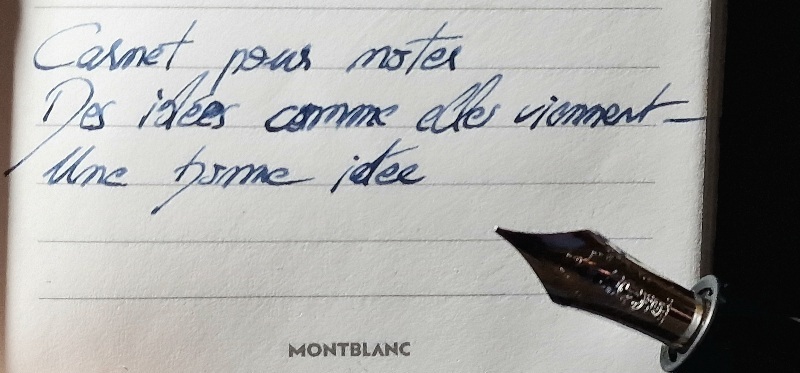 Carnet pour notes
Des idées comme elles viennent –
Une bonne idée
MONTBLANC